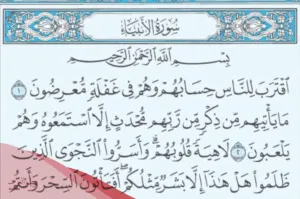 سُورَةُ الأَنبِيَاءِ
بِسْمِ اللَّهِ الرَّحْمَٰنِ الرَّحِيمِ
اقْتَرَبَ لِلنَّاسِ حِسَابُهُمْ وَهُمْ فِي غَفْلَةٍ مُّعْرِضُونَ ١
مَا يَأْتِيهِم مِّن ذِكْرٍ مِّن رَّبِّهِم مُّحْدَثٍ إِلَّا اسْتَمَعُوهُ وَهُمْ
يَلْعَبُونَ ٢ لَاهِيَةً قُلُوبُهُمْ وَأَسَرُّوا النَّجْوَى الَّذِينَ
ظَلَمُوا هَلْ هَٰذَا إِلَّا بَشَرٌ مِّثْلُكُمْ أَفَتَأْتُونَ السِّحْرَ وَأَنتُمْ